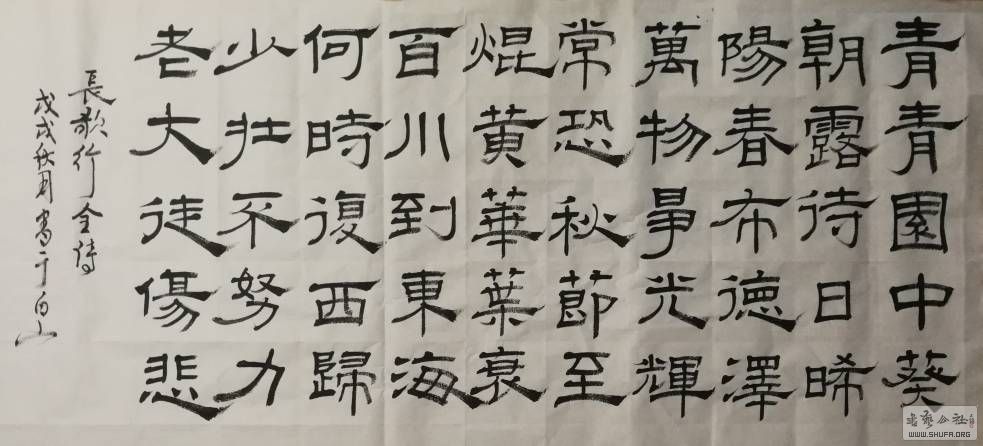 青青園中葵
朝露待日晞
陽春布德澤
萬物光輝
常恐秋節至
焜黄華葉衰
百川到東海
何時復西歸
少壯不努力
老大徒傷悲
長歌行全詩
戊戌秋書于白山
书艺公社
WWW.SHUFA.ORG